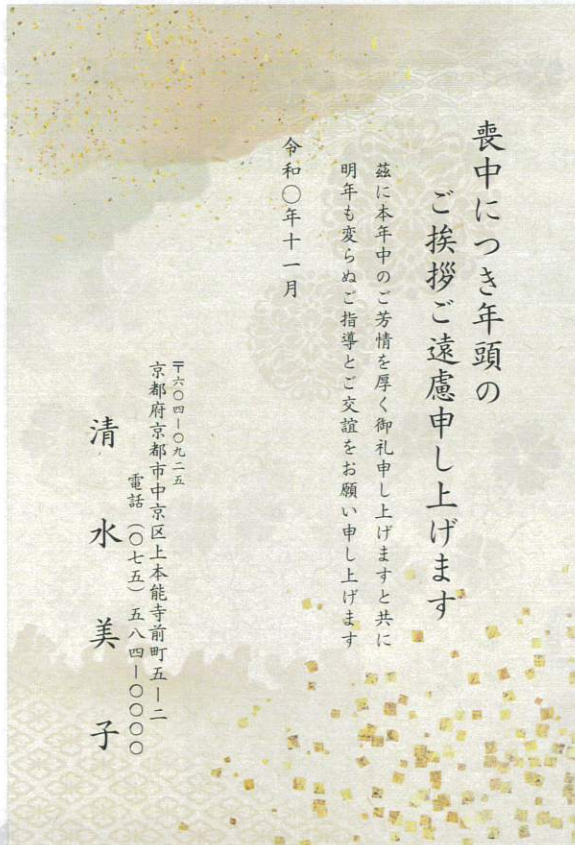 喪中につき年頭の
ご挨拶ご遠慮申し上げます
茲に本年中のご芳情を厚く御礼申し上げますと共に
明年も変らぬご指導とご交誼をお願い申し上げます
令和〇年十一月
〒六〇四ー〇九二五
京都府京都市中京区上本能寺前町五ー二
電話（〇七五）五八四ー〇〇〇〇
清水美子